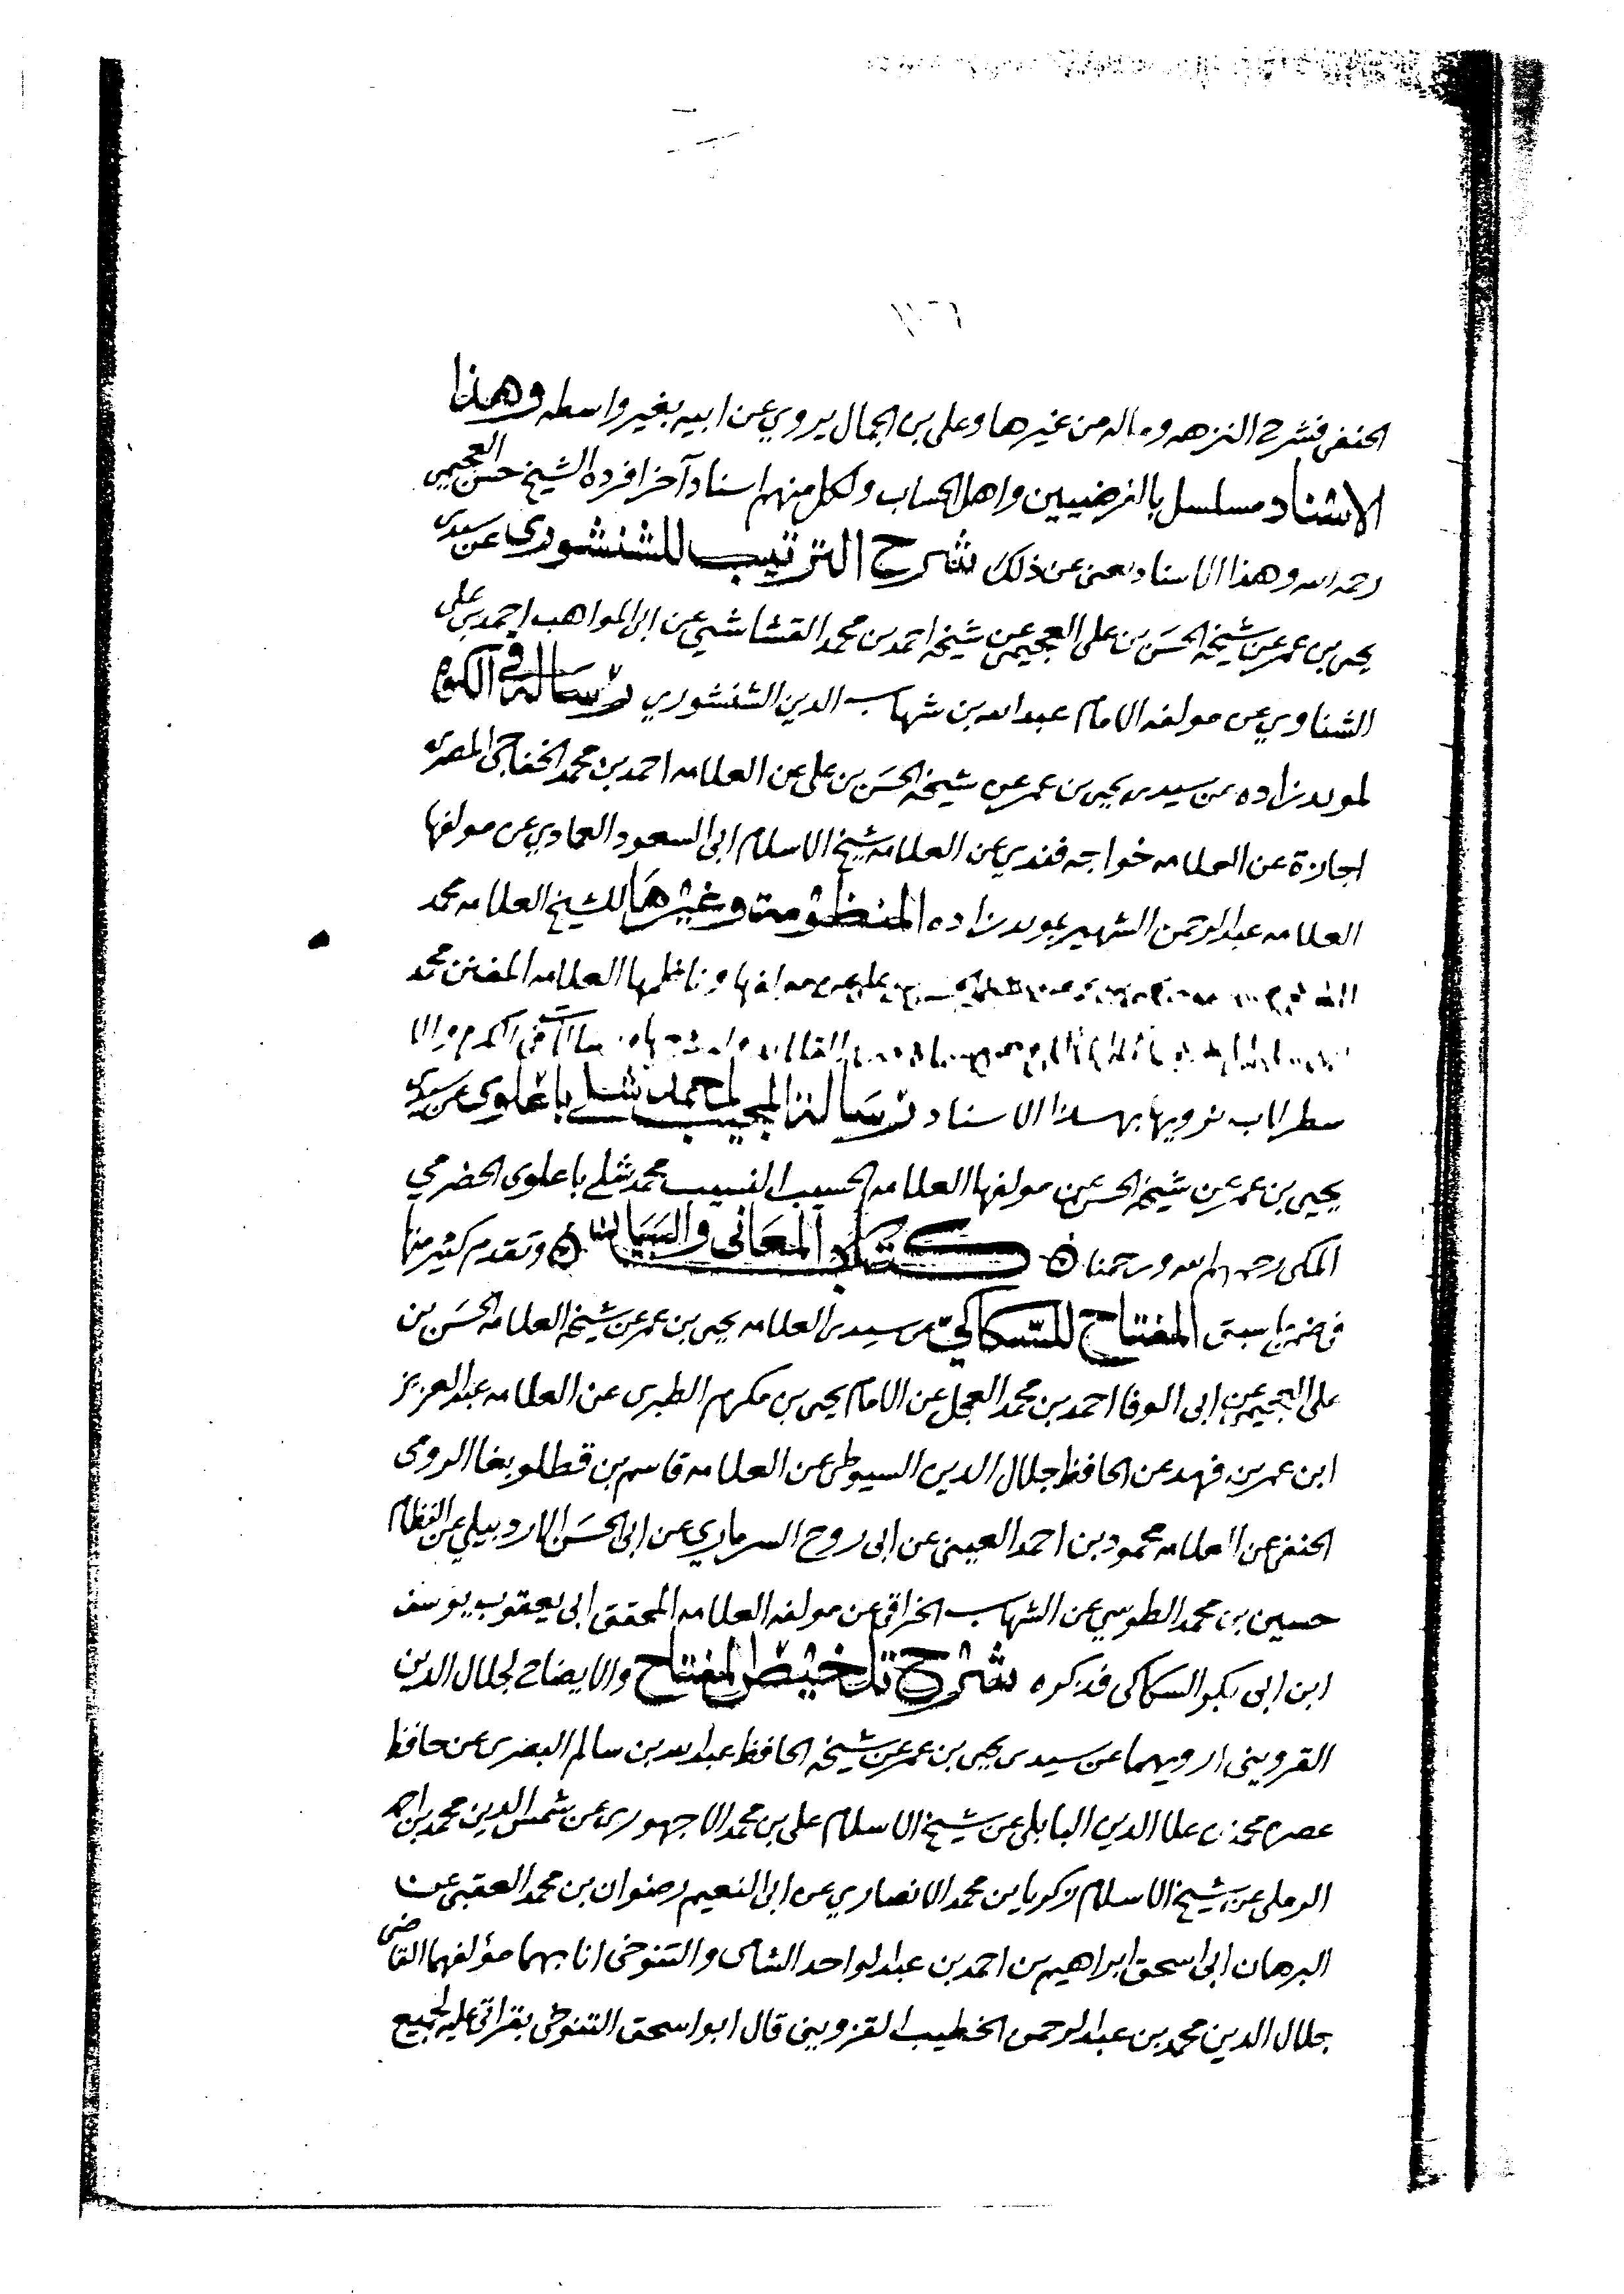 الحنفى فشرح النزهه و ماله من غيرها وعلى بن الجمال يروي عن ابيه بغير واسطه وهذا
الاسناد مسلسل بالفرضيين واهل الحساب ولكل منهم اسناد آخر افرده الشيخ حسن العجيمي
رحمه الله وهذا الاسناد يغنى عن ذلك شرح الترتيب للشنشورى عن سيدى
يحيى بن عمر عن شيخه الحسن بن على العجيمى عن شيخه احمد بن محمد القشاشي عن ابى المواهب احمد بن على
الشناوي عن مولفه الامام عبد الله بن شهاب الدين الشنشوري رسالة في
لمويد زاده عن سيدى يحيى بن عمر عن شيخه الحسن بن على عن العلامه احمد بن محمد الخفاجى المصرى
اجازة عن العلامه خواجه فندي عن العلامه شيخ الاسلام ابى السعود العمادي عن مولفها
العلامه عبد الرحمن الشهير بمويد زاده المنظومة وغيرها للشيخ العلامه محمد
وناظمها العلامه المفنن محمد
سطرلاب نرويها بهذا الاسناد رسالة المجيب لمحمد شلي باعلوى عن سيدى
يحيى بن عمر عن شيخه الحسن عن مولفها العلامه الحسيب النسيب محمد شلي باعلوى الحضرمي
المكى رحمهم الله ورحمنا كتاب المعانى والبيان وتقدم كثير منها
فى ضمن ما سبق المفتاح للسكاكي عن سيدى العلامه يحيى بن عمر عن شيخه العلامه الحسن بن
على العجيمى عن ابى الوفا احمد بن محمد العجل عن الامام يحيى بن مكرم الطبرى عن العلامه عبد العزيز
ابن عمر بن فهد عن الحافظ جلال الدين السيوطى عن العلامه قاسم بن قطلوبغا الرومى
الحنفى عن العلامه محمود بن احمد العينى عن ابى روح السرماري عن ابى الحسن الاردبيلي عن النظام
حسين بن محمد الطوسي عن الشهاب الخراقى عن مولفه العلامه المحقق ابى يعقوب يوسف
ابن ابى بكر السكاكى فذكره شرح تلخيص المفتاح والايضاح لجلال الدين
القزوينى ارويهما عن سيدى يحيى بن عمر عن شيخه الحافظ عبد الله بن سالم البصرى عن حافظ
عصره محمد بن علا الدين البابلى عن شيخ الاسلام على بن محمد الاجهورى عن شمس الدين محمد بن احمد
الرملى عن شيخ الاسلام زكريا بن محمد الانصاري عن ابى النعيم رضوان بن محمد العقبى عن
البرهان ابى اسحق ابراهيم بن احمد بن عبد الواحد الشامى والتنوخى انا بهما مؤلفهما القاضى
جلال الدين محمد بن عبد الرحمن الخطيب القزوينى قال ابو اسحق التنوخى بقراتى عليه لجميع